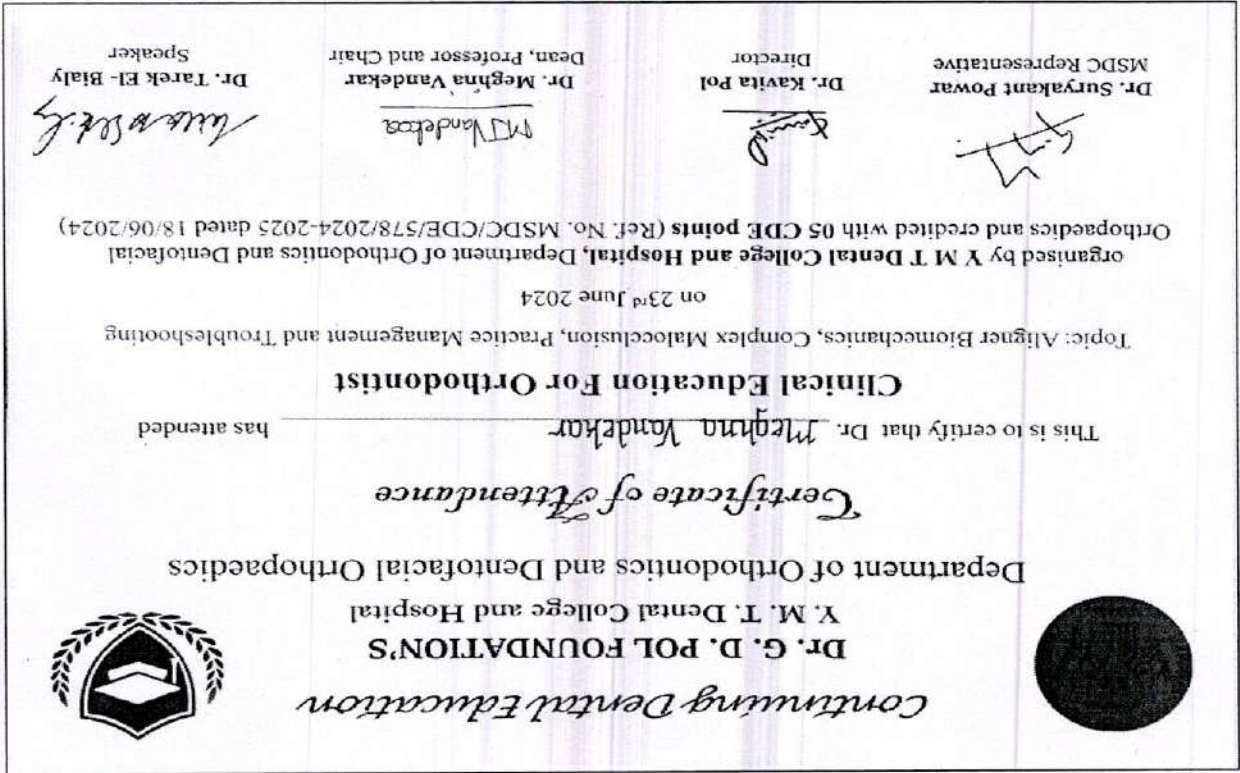 Continuing Dental Education
Dr. G. D. POL FOUNDATION'S
Y. M. T. Dental College and Hospital
Department of Orthodontics and Dentofacial Orthopaedics
Certificate of Attendance
This is to certify that Dr. Meghna Vandekar has attended
Clinical Education For Orthodontist
Topic: Aligner Biomechanics, Complex Malocclusion, Practice Management and Troubleshooting
on 23rd June 2024
organised by Y M T Dental College and Hospital, Department of Orthodontics and Dentofacial
Orthopaedics and credited with 05 CDE points (Ref. No. MSDC/CDE/578/2024-2025 dated 18/06/2024)
MJVandekar
Dr. Suryakant Powar Dr. Kavita Pol Dr. Meghna Vandekar Dr. Tarek El-Bialy
MSDC Representative Director Dean, Professor and Chair Speaker